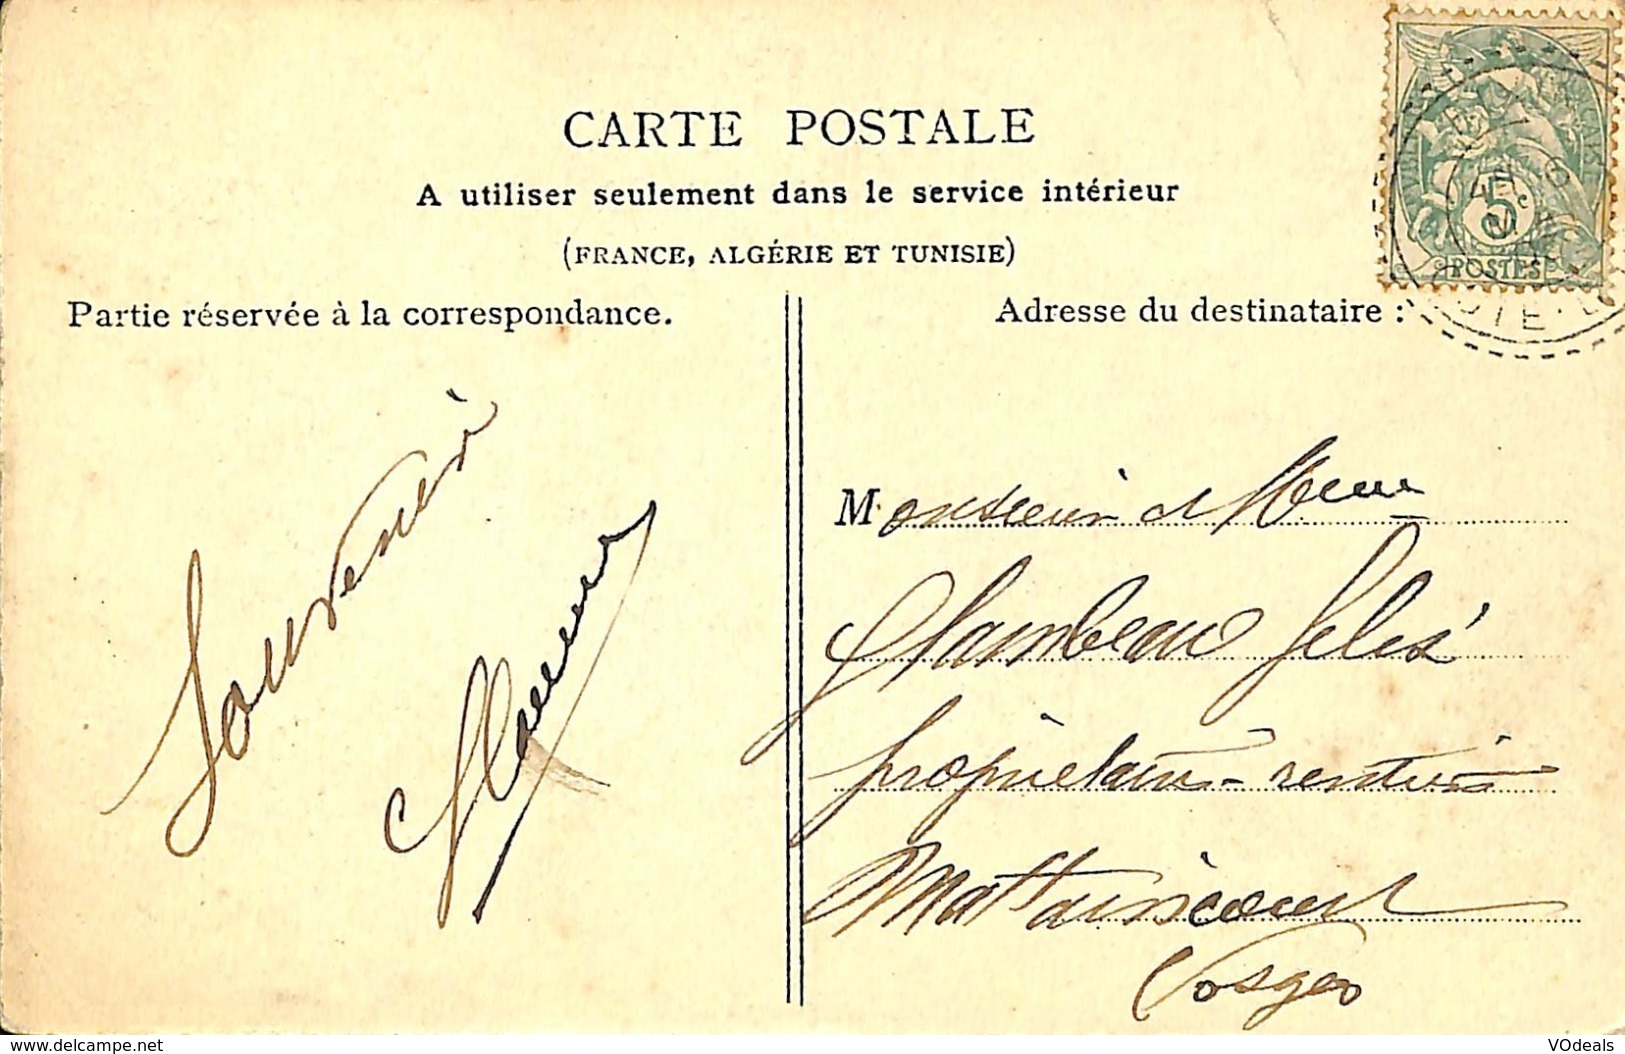 CARTE POSTALE
A utiliser seulement dans le service intérieur
(FRANCE, ALGÉRIE ET TUNISIE)
Partie réservée à la correspondance.
Souvenir
Adresse du destinataire :
5
POSTES
Monsieur et Mme
Flambeau
propriétaire-rentier
Mattaincourt
Vosges
www.delcampe.net
VOdeals